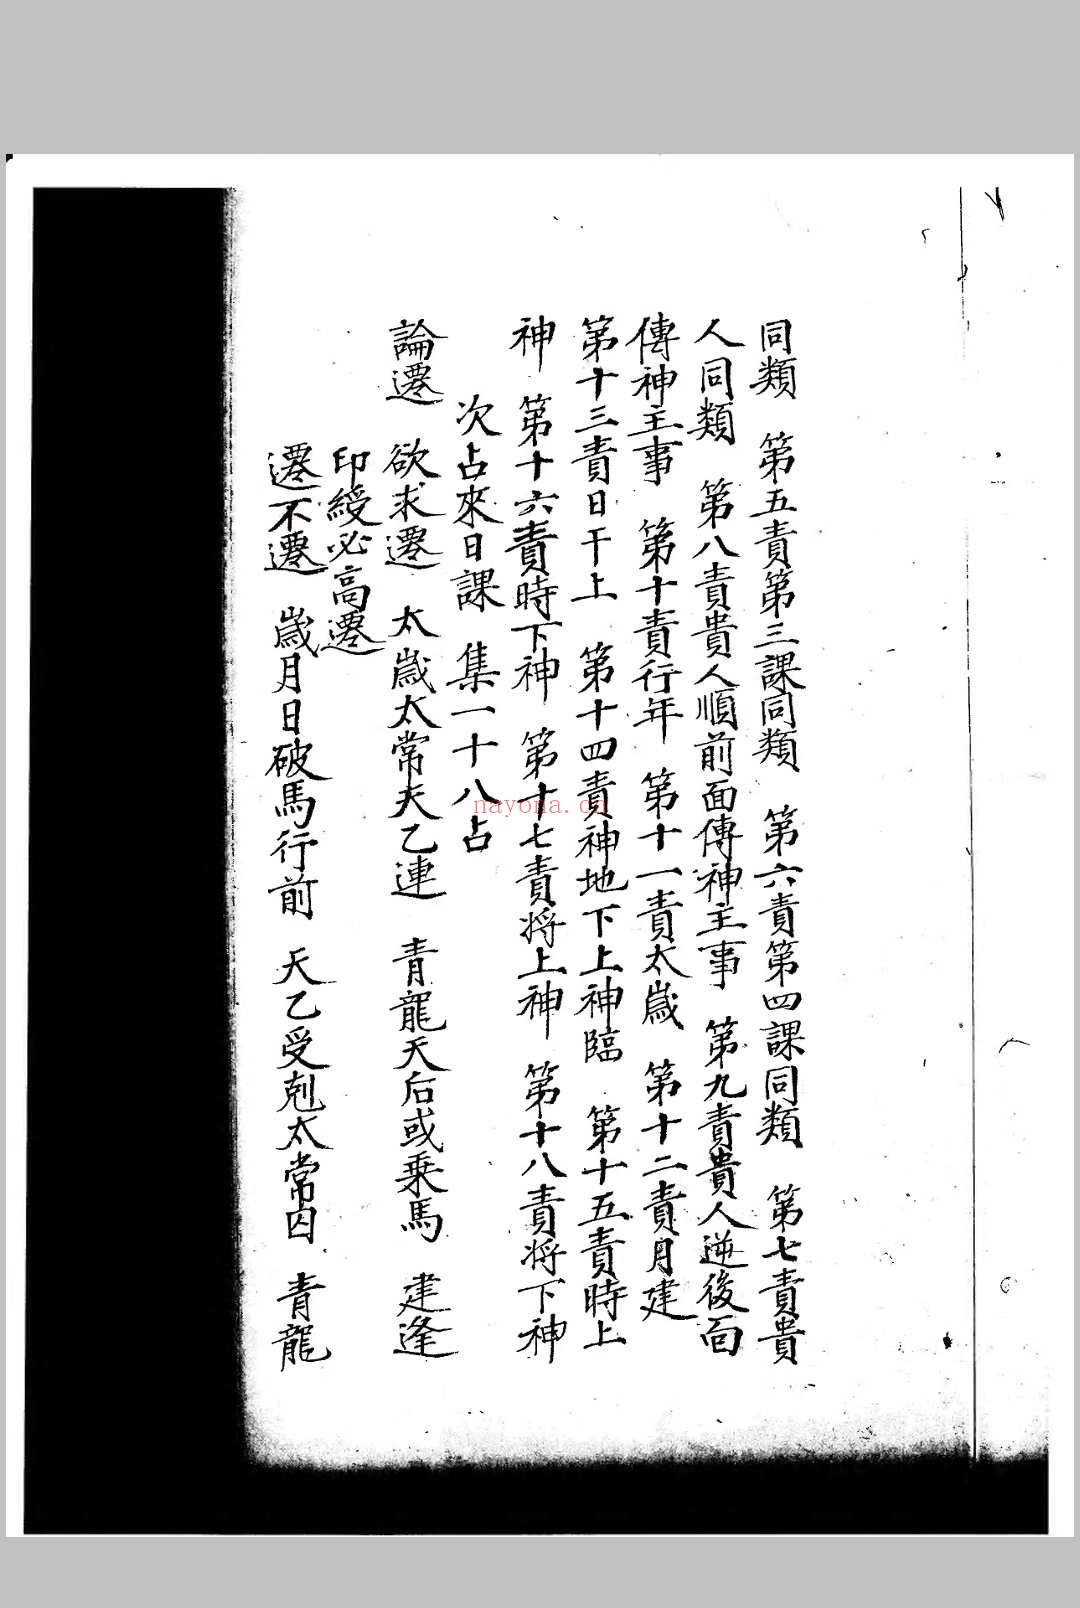 同類　第五責第三課同類　第六責第四課同類　第七責貴
人同類　第八責貴人順前面傳神主事　第九責貴人逆後面
傳神主事　第十責行年　第十一責太歲　第十二責月建
第十三責日干上　第十四責神地下上神臨　第十五責時上
神　第十六責時下神　第十七責将上神　第十八責将下神
次占來日課　集一十八占
論遷　欲求遷　太歲太常天乙連　青龍天后或乗馬　建逢
印綬必高遷
遷不遷　歲月日破馬行前　天乙受剋太常囚　青龍
nayona.cn